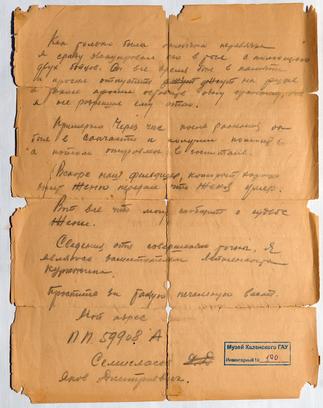 Как только была окончена перевязка
я сразу эвакуировал его в тыл с помощью
двух бойцов. Он всё время был в памяти
и просил отпустить жгут на руке
а также просил
я не разрешил ему этого.
Примерно через час после ранения он
был в санчасти и получил помощь
а потом отправлен в госпиталь.
Вскоре наш фельдшер, который
Женю передал что Женя умер.
Вот все что могу сообщить о судьбе
Жени.
Сведения эти совершенно точны, я
являюсь заместителем лейтенанта
Простите за такую печальную весть.
Мой адрес
П.П. 59908 "А"
Семисласов
Яков Дмитриевич.
Музей Казанского ГАУ
Инвентарный № 190